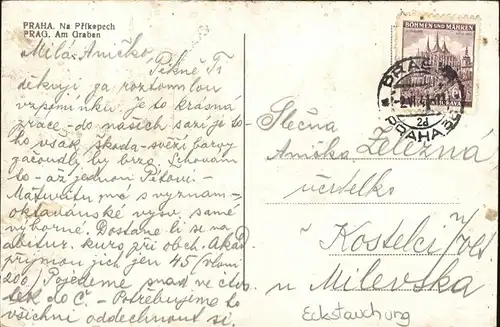 PRAHA. Na Příkopech
PRAG. Am Graben
Milá Aničko!
Pěkně Ti
děkuji za roztomilou
vzpomínku. Je to krásná
práce - do našich sazí je to-
ho však škoda - svěží barvy
začoudly by brzo. Schovám
to - až jednou Péťovi -
Maturitu má s vyznam-
oktavánské vysv. samé
výborné. Dostane li se na
abitur. kurs při obch. Akad.
přijmou jich jen 45 /vloni
200/ Pojedeme snad ve čtvr-
tek do Č - Potřebujeme to
všichni oddechnout si.
BÖHMEN UND MÄHREN
ČECHY A MORAVA
PRAG
PRAHA
2d
Slečna
Anička Železná
učitelka
Kostelci
u Milevska
Eckstauchung